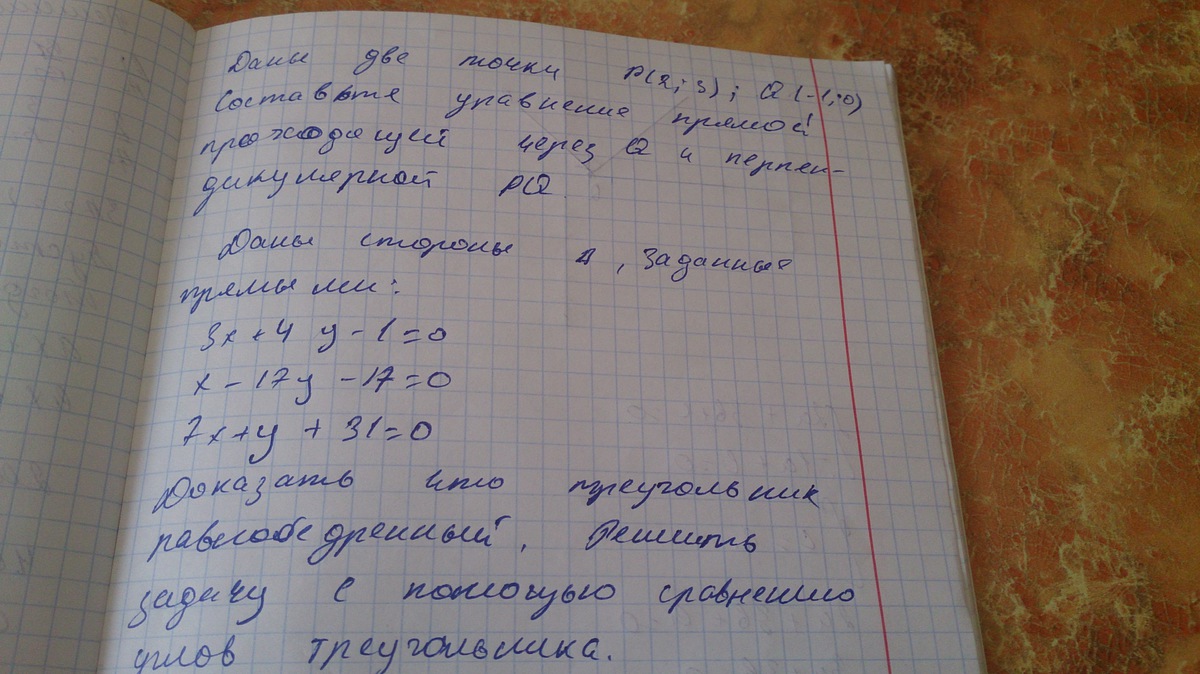 Даны две точки P(2; 3); Q(-1; 0)
Составьте уравнение прямой
проходящей через Q и перпен-
дикулярной PQ.
Даны стороны Δ, заданные
прямыми:
3x + 4y - 1 = 0
x - 17y - 17 = 0
7x + y + 31 = 0
Доказать что треугольник
равнобедренный. Решить
задачу с помощью сравнению
углов треугольника.